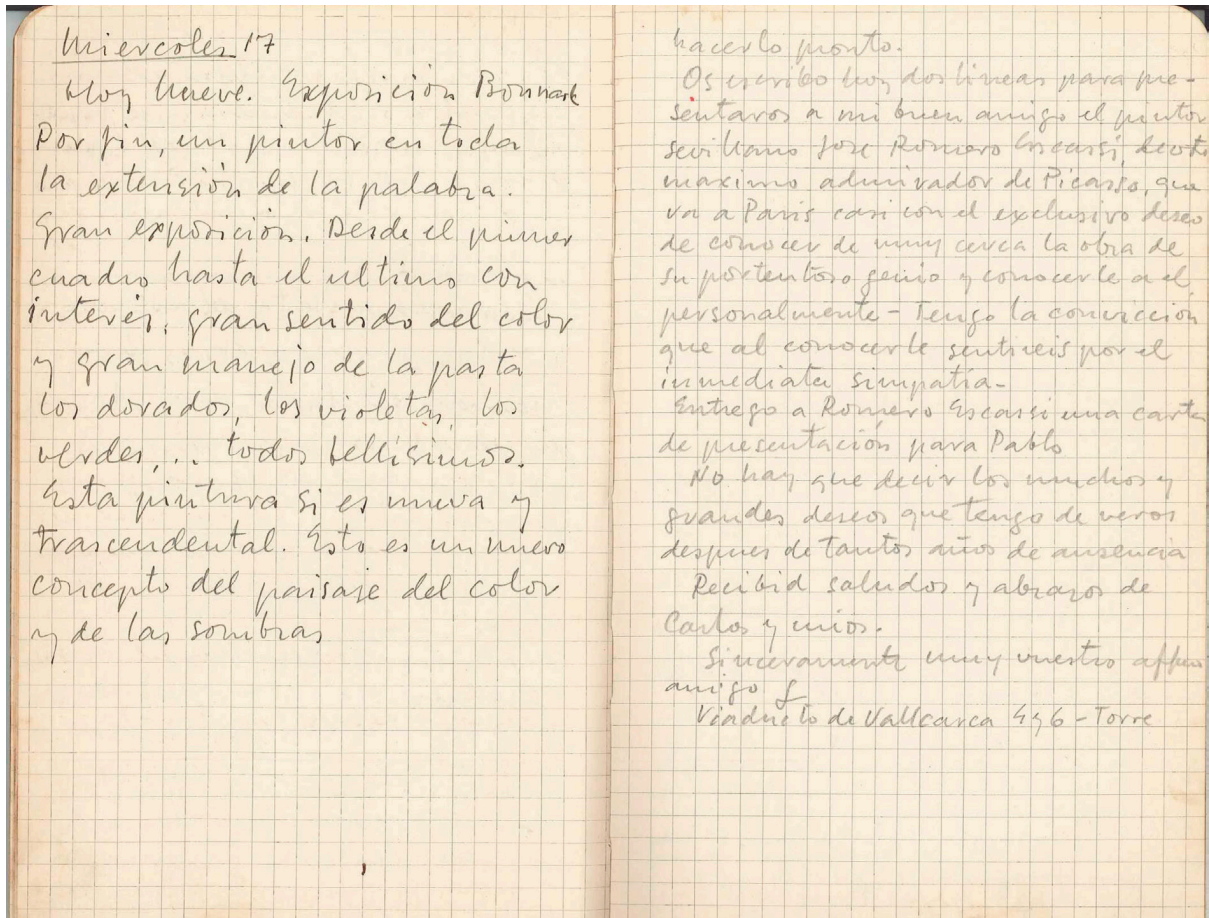 Miercoles 17
Hoy llueve. Exposición Bonnard
Por fin, un pintor en toda
la extensión de la palabra.
Gran exposición. Desde el primer
cuadro hasta el ultimo con
interés, gran sentido del color
y gran manejo de la pasta
los dorados, los violetas, los
verdes,.. todos bellísimos.
Esta pintura si es nueva y
trascendental. Esto es un nuevo
concepto del paisaje del color
y de las sombras
hacerlo pronto.
Os escribo hoy dos lineas para pre-
sentaros a mi buen amigo el pintor
sevillano Jose Romero Escassi, devoto
maximo admirador de Picasso, que
va a Paris casi con el exclusivo deseo
de conocer de muy cerca la obra de
su portentoso genio y conocerle a el
personalmente - Tengo la convicción
que al conocerle sentireis por el
inmediata simpatía-
Entrego a Romero Escassi una carta
de presentación para Pablo
No hay que decir los muchos y
grandes deseos que tengo de veros
despues de tantos años de ausencia
Recibid saludos y abrazos de
Carlos y mios.
Sinceramente muy vuestro affmo
amigo
Viaducto de Vallcarca 4 y 6 - Torre